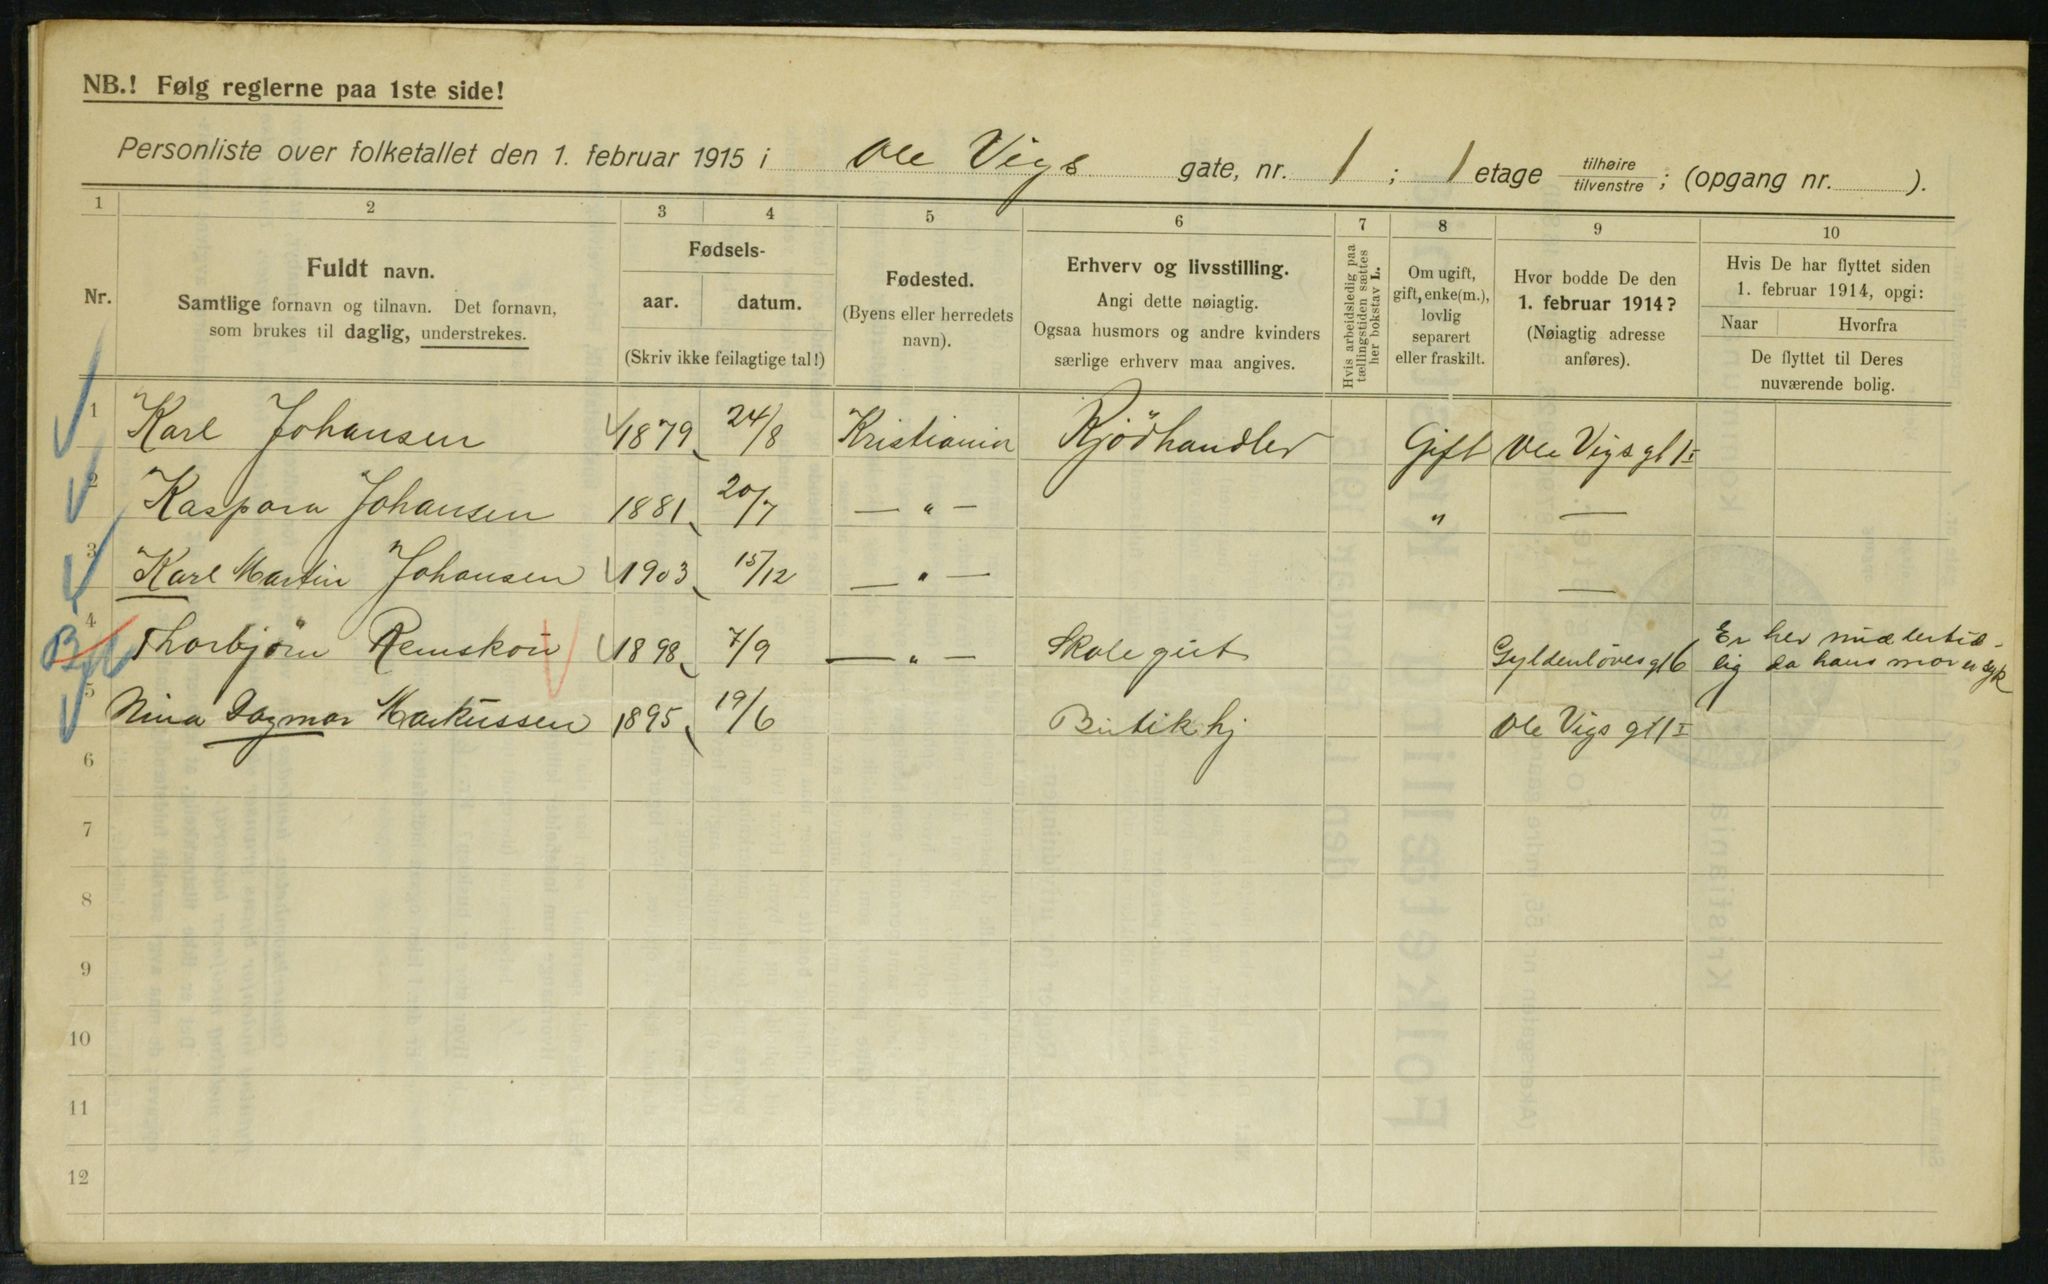 NB.! Følg reglerne paa 1ste side!
Personliste over folketallet den 1. februar 1915 i Ole Vigs gate, nr. 1; 1 etage tilhøire/tilvenstre; (opgang nr. ).
1 2 3 4 5 6 7 8 9 10
Nr.
Fuldt navn.
Samtlige fornavn og tilnavn. Det fornavn,
som brukes til daglig, understrekes.
Fødsels-
aar. datum.
(Skriv ikke feilagtige tal!)
Fødested.
(Byens eller herredets
navn).
Erhverv og livsstilling.
Angi dette nøiagtig.
Ogsaa husmors og andre kvinders
særlige erhverv maa angives.
Hvis arbeidsledig paa
tællingstiden sættes
her bokstav L.
Om ugift,
gift, enke(m.),
lovlig
separert
eller fraskilt.
Hvor bodde De den
1. februar 1914?
(Nøiagtig adresse
anføres).
Hvis De har flyttet siden
1. februar 1914, opgi:
Naar Hvorfra
De flyttet til Deres
nuværende bolig.
1 Karl Johansen 1879 24/8 Kristiania Kjödhandler Gift Ole Vigs gt 1 I
2 Kaspara Johansen 1881 20/7 — " — " —
3 Karl Martin Johansen 1903 15/12 — " — —
4 Thorbjörn Remskou 1898 7/9 — " — Skolegut Gyldenløvesgt 6 Er her midlertid-
lig da hans mor er syk
5 Nina Dagmar Markussen 1895 19/6 Butikhj Ole Vigs gt 1 I
6
7
8
9
10
11
12